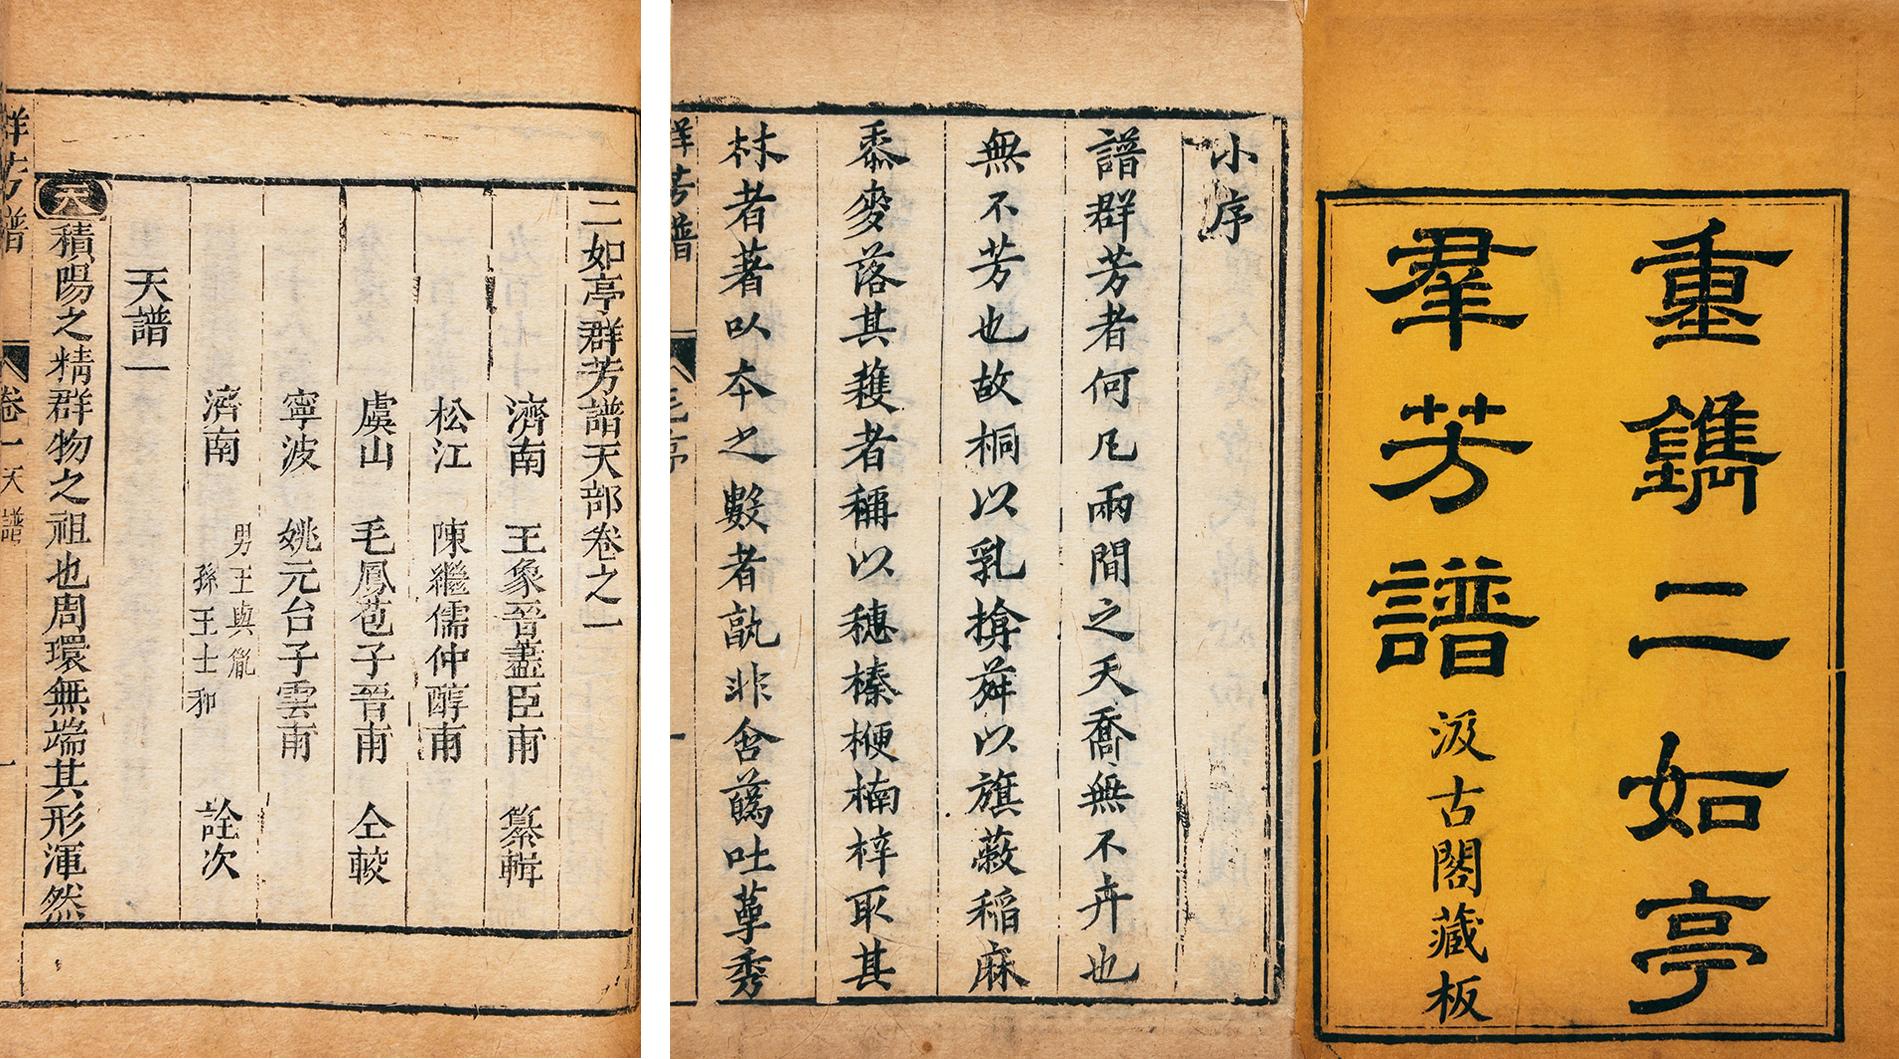 重鐫二如亭
羣芳譜
汲古閣藏板
小序
譜群芳者何凡兩間之夭喬無不卉也
無不芳也故桐以乳搚蕣以旗蔽稻麻
黍麥落其穫者稱以穗榛楩楠梓取其
林者著以本之數者孰非含蕊吐蕚秀
群芳譜
二如亭群芳譜天部卷之一
濟南 王象晉藎臣甫 纂輯
松江 陳繼儒仲醇甫
虞山 毛鳳苞子晉甫 仝較
寧波 姚元台子雲甫
濟南 男王與胤 孫王士和 詮次
天譜一
天 積陽之精群物之祖也周環無端其形渾然
群芳譜 卷一 天譜 一